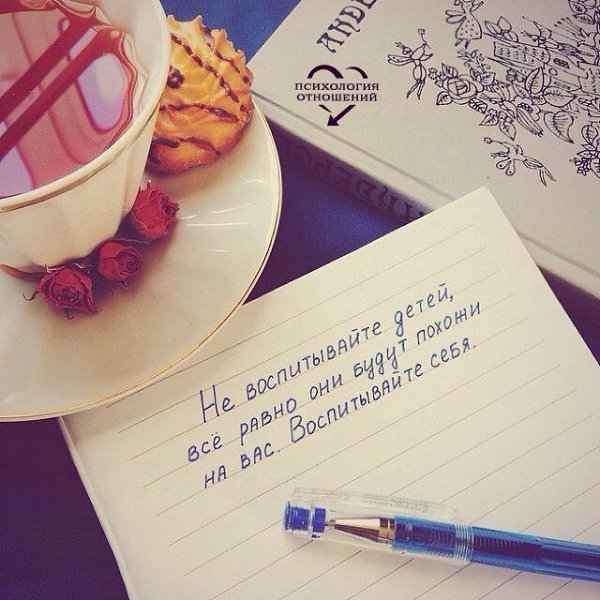 ПСИХОЛОГИЯ
ОТНОШЕНИЙ
Не воспитывайте детей,
всё равно они будут похожи
на вас. Воспитывайте себя.